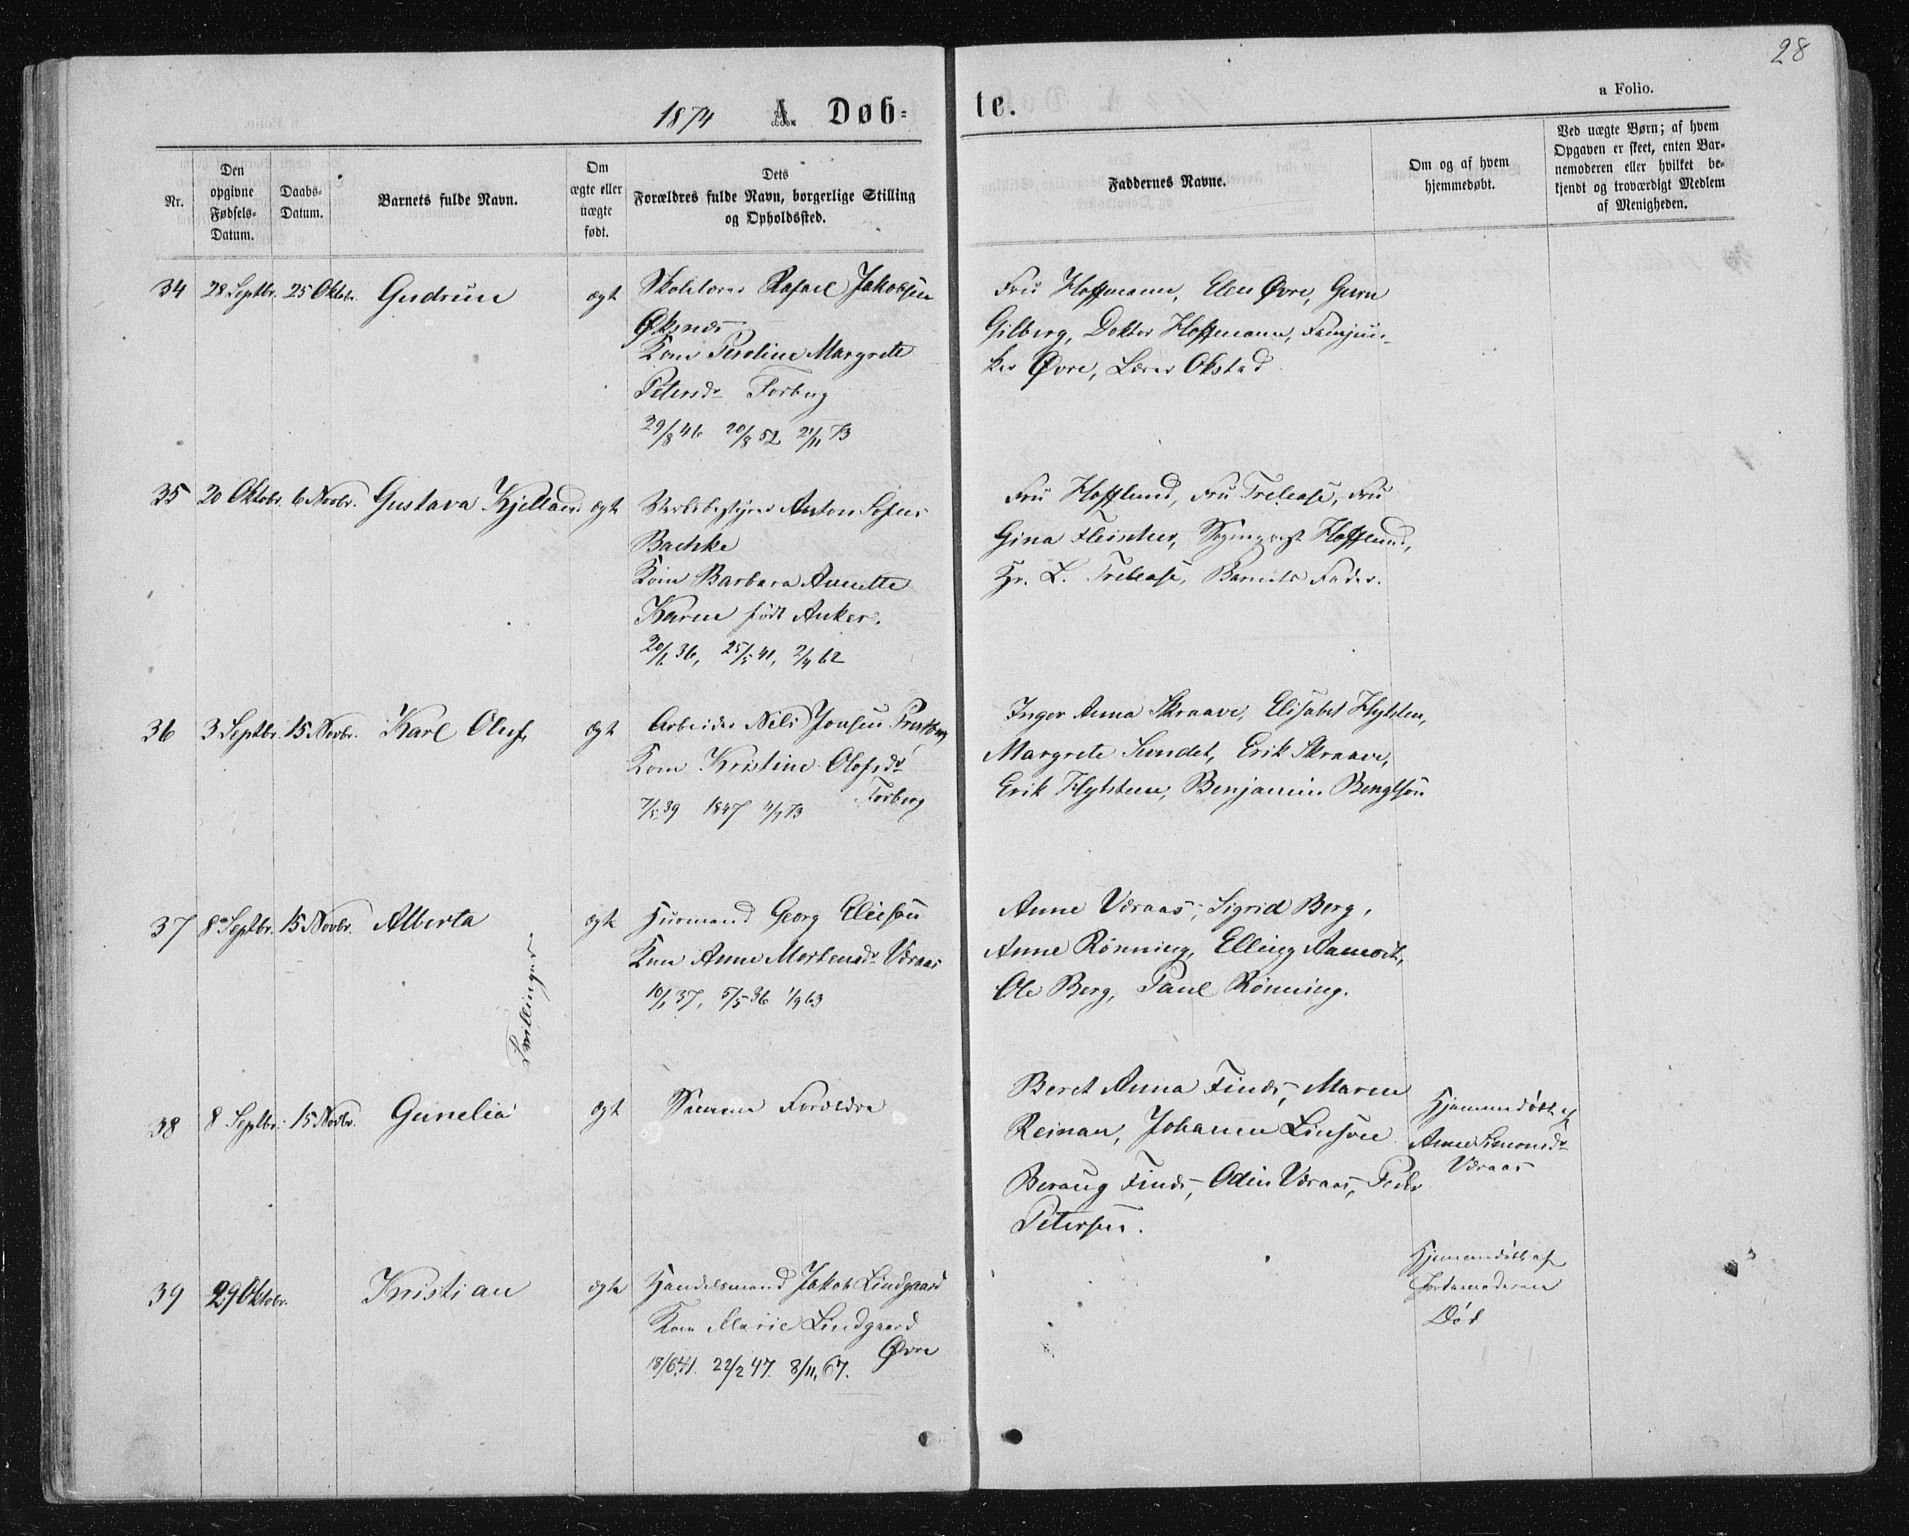 28
1874 A Døb=te.
a Folio.
Nr.
Den opgivne Fødsels-Datum.
Daabs-Datum.
Barnets fulde Navn.
Om ægte eller uægte født.
Dets Forældres fulde Navn, borgerlige Stilling og Opholdssted.
Faddernes Navne.
Om og af hvem hjemmedøbt.
Ved uægte Børn; af hvem
Opgaven er skeet, enten Bar-
nemoderen eller hvilket be-
kjendt og troværdigt Medlem
af Menigheden.
34 28 Septbr. 25 Oktbr. Gudrun ægt
Skolelærer Rafael Jakobsen
Øksnes
Kone Peroline Margrete
Petersdr Forberg
29/8 46 20/8 52 21/11 73
Fru Hoffmann, Elen Øvre, Guru
Gilberg, Doktor Hoffmann, Fanejun-
ker Øvre, Lærer Okstad
35 20 Oktobr. 6 Novbr. Gustava Kjelland ægt
Værksbestyrer Anton Sofus
Bachke
Kone Barbara Annette
Karen født Anker.
20/6 36, 25/5 41, 2/9 62
Fru Hofflund, Fru Trelease, Fru
Gina Fleischer, Hofflund,
Hr. L. Trelease, Barnets Fader.
36 3 Septbr. 15 Novbr. Karl Oluf ægt
Arbeider Nils Jonsen
Kone Kristine Olofsdr
Forberg
39 1847 73
Inger Anna Skraave, Elisabet Hylsten,
Margrete Sundet, Erik Skraave,
Erik Hylsten, Benjamin Bengtsøn
37 8 Septbr. 15 Novbr. Alberta ægt
Tvillinger
Husmand Georg Eliesøn
Kone Anne Mortensdr Væraas
10/1 37, 5/5 36 1/9 63
Anne Væraas, Sigrid Berg,
Anne Rönning, Elling Aamodt,
Ole Berg, Paul Rönning.
38 8 Septbr. 15 Novbr. Gunelia ægt
Samme Forældre
Beret Anna Finds, Maren
Reinan, Johanna Linsøe
Beraug Finds, Odin Væraas, Peder
Petersen.
Hjemmedøbt af
Anne Simonsdr
Væraas
39 29 Oktobr. Kristian ægte
Handelsmand Jakob Lindgaard
Kone Marie Lindgaard
Øvre
18/6 41. 22/2 47. 8/11, 67.
Hjemmedöbt af
Jordemoderen
Död